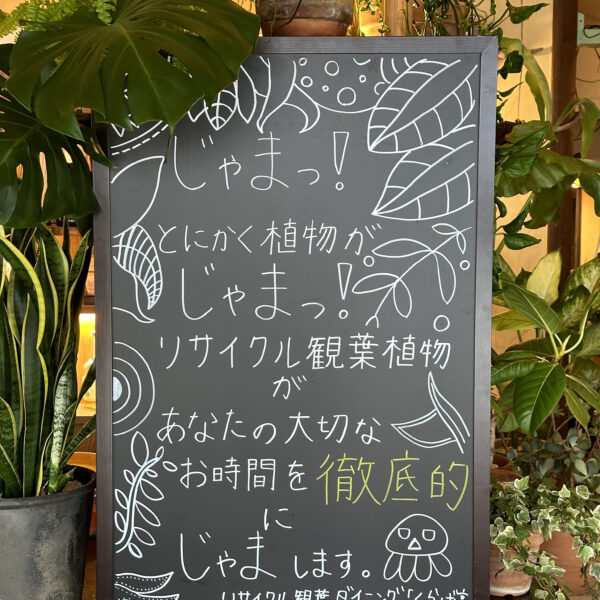 じゃまっ!
とにかく植物が
じゃまっ!
リサイクル観葉植物
が
あなたの大切な
お時間を徹底的
に
じゃまします。
リサイクル観葉ダイニング